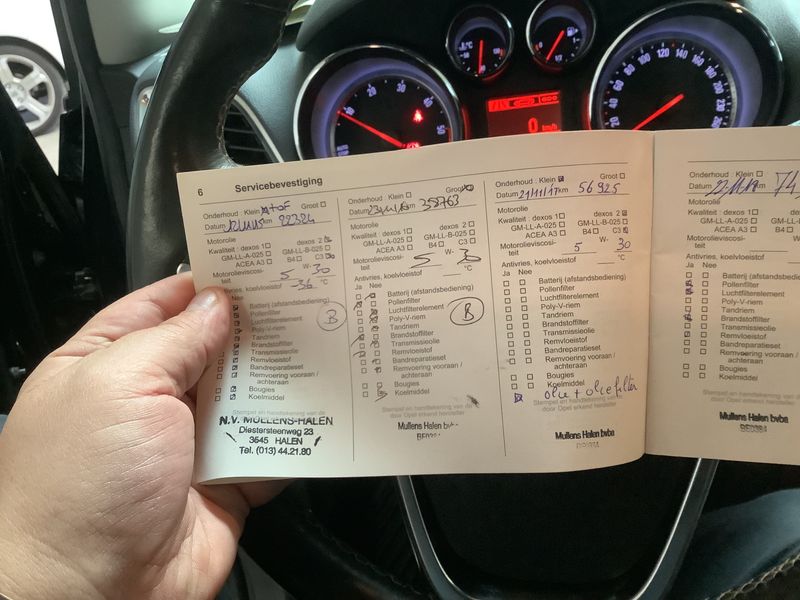 6 Servicebevestiging
Onderhoud : Klein Groot
Datum 12/11/15 km 22324
Motorolie
Kwaliteit : dexos 1 dexos 2
GM-LL-A-025 GM-LL-B-025
ACEA A3 B4 C3
Motorolieviscosi- 5 W- 30
teit
Antivries, koelvloeistof -36 °C
Ja Nee
Batterij (afstandsbediening)
Pollenfilter
Luchtfilterelement
Poly-V-riem
Tandriem
Brandstoffilter
Transmissieolie
Remvloeistof
Bandreparatieset
Remvoering vooraan /
achteraan
Bougies
Koelmiddel
Stempel en handtekening van de
N.V. MULLENS-HALEN
Diestersteenweg 23
3545 HALEN
Tel. (013) 44.21.80
Onderhoud : Klein Groot
Datum km
Motorolie
Kwaliteit : dexos 1 dexos 2
GM-LL-A-025 GM-LL-B-025
ACEA A3 B4 C3
Motorolieviscosi- 5 W- 30
teit
Antivries, koelvloeistof °C
Ja Nee
Batterij (afstandsbediening)
Pollenfilter
Luchtfilterelement
Poly-V-riem
Tandriem
Brandstoffilter
Transmissieolie
Remvloeistof
Bandreparatieset
Remvoering vooraan /
achteraan
Bougies
Koelmiddel
Stempel en handtekening van de
door Opel erkend hersteller
Mullens Halen
Onderhoud : Klein Groot
Datum 21/11/17 km 56925
Motorolie
Kwaliteit : dexos 1 dexos 2
GM-LL-A-025 GM-LL-B-025
ACEA A3 B4 C3
Motorolieviscosi- 5 W- 30
teit
Antivries, koelvloeistof °C
Ja Nee
Batterij (afstandsbediening)
Pollenfilter
Luchtfilterelement
Poly-V-riem
Tandriem
Brandstoffilter
Transmissieolie
Remvloeistof
Bandreparatieset
Remvoering vooraan /
achteraan
Bougies
Koelmiddel
olie + oliefilter
Stempel en handtekening van de
door Opel erkend hersteller
Mullens Halen bvba
Onderhoud : Klein
Datum km
Motorolie
Kwaliteit : dexos 1
GM-LL-A-025
ACEA A3
Motorolieviscosi-
teit
Antivries, koelvloeistof
Ja Nee
Batterij (afstandsbediening)
Pollenfilter
Luchtfilterelement
Poly-V-riem
Tandriem
Brandstoffilter
Transmissieolie
Remvloeistof
Bandreparatieset
Remvoering vooraan /
achteraan
Bougies
Koelmiddel
Stempel en handtekening
door Opel erkend hersteller
Mullens Halen bvba
0 km/h